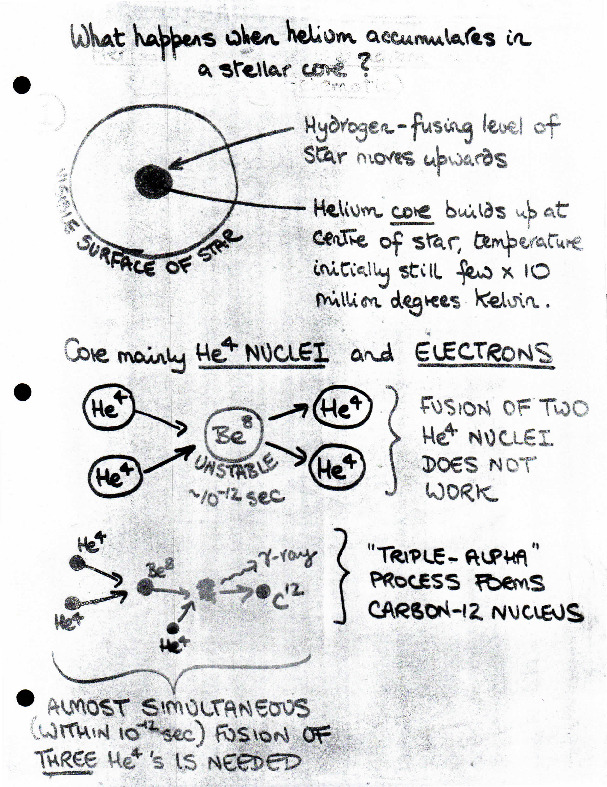 What happens when helium accumulates in
a stellar core?
Hydrogen-fusing level of
star moves upwards
VISIBLE SURFACE OF STAR
Helium core builds up at
centre of star, temperature
initially still few x 10
million degrees Kelvin.
Core mainly He⁴ NUCLEI and ELECTRONS
He⁴
He⁴
Be⁸
UNSTABLE
~10⁻¹² sec
He⁴
He⁴
FUSION OF TWO
He⁴ NUCLEI
DOES NOT
WORK
He⁴
He⁴
Be⁸
He⁴
γ-ray
C¹²
"TRIPLE-ALPHA"
PROCESS FORMS
CARBON-12 NUCLEUS
ALMOST SIMULTANEOUS
(WITHIN 10⁻¹² sec) FUSION OF
THREE He⁴'s IS NEEDED